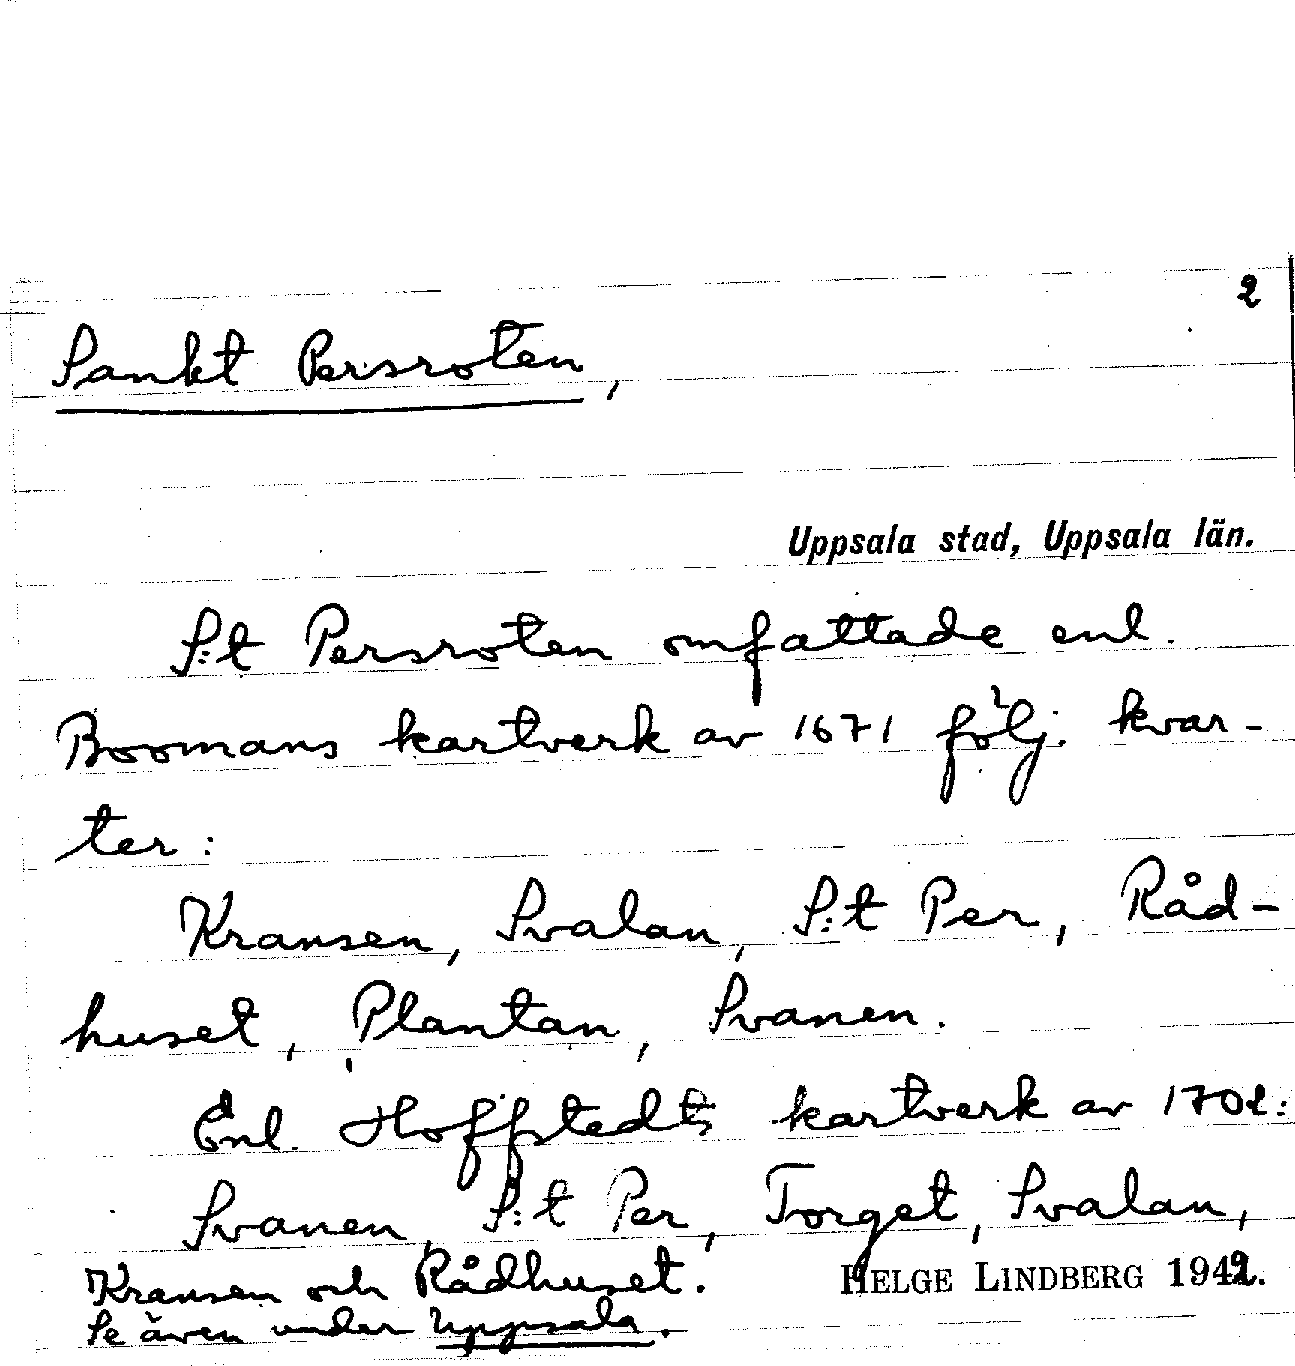 2
Sankt Persroten,
Uppsala stad, Uppsala län.
S:t Persroten omfattade enl.
Boomans kartverk av 1671 följ. kvar-
ter:
Kransen, Svalan, S:t Per, Råd-
huset, Plantan, Svanen.
Enl. Hoffstedts kartverk av 1702:
Svanen, S:t Per, Torget, Svalan,
Kransen och Rådhuset.
HELGE LINDBERG 1942.
Se även under Uppsala.